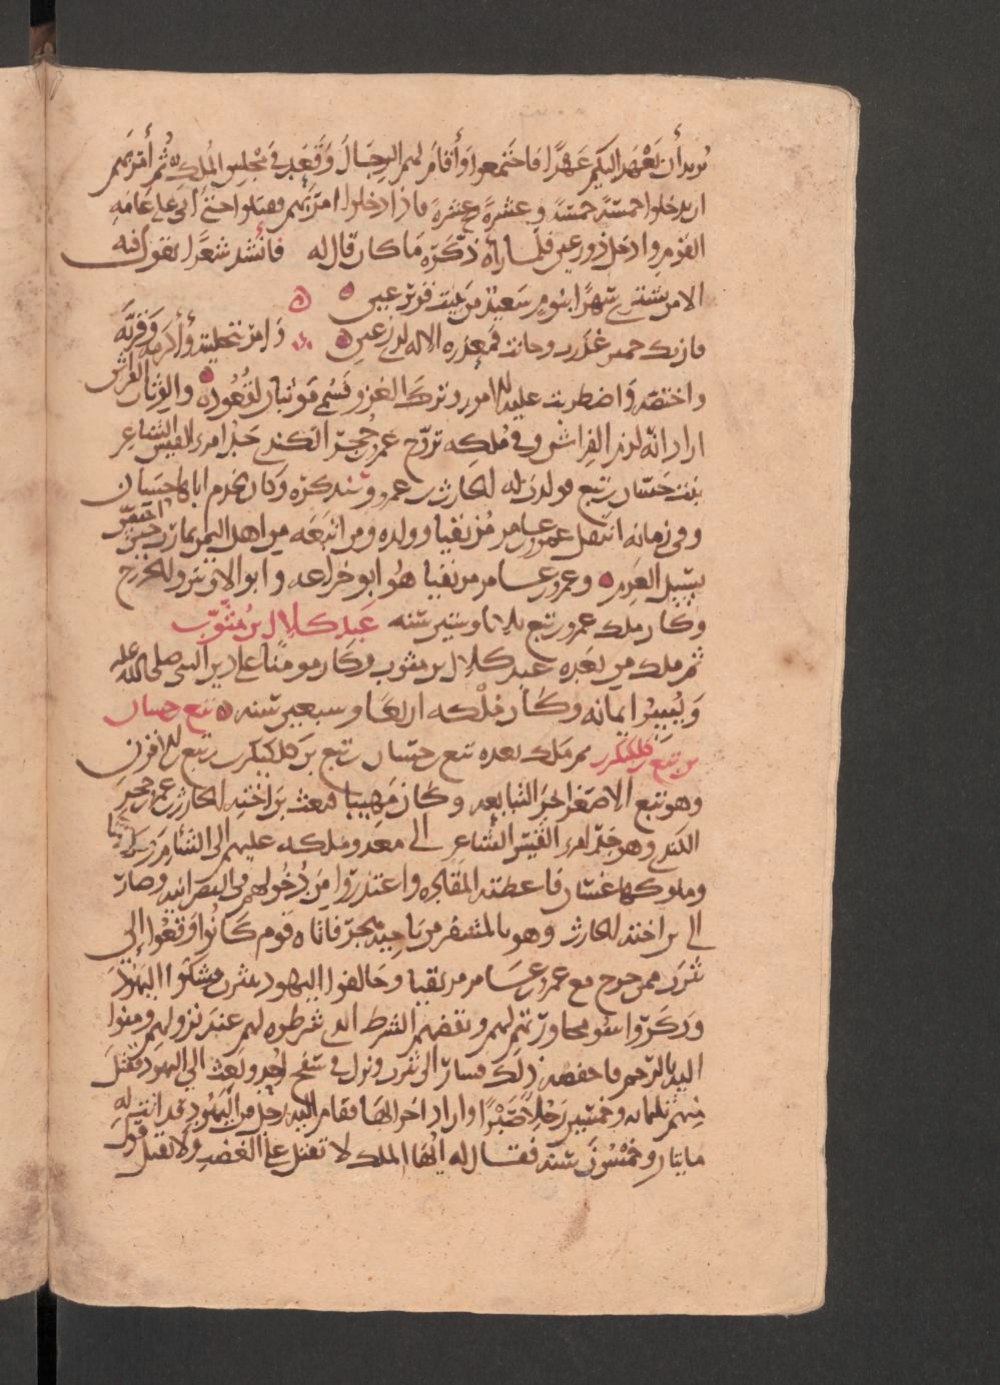 نريد أن نعهد إليكم عهدًا فاجتمعوا وأقام لهم الرجال وقعد في مجلس الملك ثم أمرهم
ان يدخلوا خمسة خمسة وعشرة عشرة فاذا دخلوا امر بهم فقتلوا حتى أتى على عامة
القوم وادخل ذو رعين فلما رآه ذكره ما كان قال له فأنشد شعرًا يقول فيه
الا من يشتري سهرا بنوم سعيد من يبيت قرير عين
فان تك حمير غدرت وخانت فمعذرة الاله لذي رعين
واختصه واضطربت عليه الامور وترك الغزو فسمي موثبان لقعوده والوثاب الفراش
اراد انه لزم الفراش وفي ملكه تزوج عمرو بن حجر الكندي جد امرء القيس الشاعر
بنت حسان بن تبع فولدت له الحارث بن عمرو وكان يخدم اباها حسان
وفي زمانه انتقل عمرو بن عامر مزيقيا وولده ومن اتبعه من اهل اليمن
بسبيل العرم وعمرو بن عامر مزيقيا هو ابو خزاعة وابو الاوس والخزرج
وكان ملك عمرو بن تبع ثلاثا وستين سنة عبد كلال بن مثوب
ثم ملك من بعده عبد كلال بن مثوب وكان مومنا على دين النبي صلى الله عليه
ويسر ايمانه وكان ملكه اربعا وسبعين سنة تبع حسان
بن تبع كليكرب ثم ملك بعده تبع حسان بن تبع بن كليكرب بن تبع الاقرن
وهو تبع الاصغر اخر التبابعة وكان مهيبا فبعث بن اخته الحارث بن عمرو بن حجر
الكندي وهو جد امرء القيس الشاعر الى معد وملكه عليهم الى الشام
وملوكها غسان فاعطته المقادة واعتذروا من دخولهم في النصرانية وصار
الى بن اخته الحارث وهو بالمشقر من ناحية هجر فاتاه قوم كانوا وقعوا إلى
يثرب ممن خرج مع عمرو بن عامر مزيقيا وحالفوا اليهود بيثرب فشكوا اليهود
وذكروا سو مجاورتهم لهم ونقضهم الشرط الذي شرطوه لهم عند نزولهم ومتوا
اليه بالرحم فاحفظه ذلك فسار الى يثرب ونزل في سفح احد وبعث الى اليهود فقتل
منهم ثلثماية وخمسين رجلا صبرا واراد اخرابها فقام اليه رجل من اليهود قد اتت له
مايتان وخمسون سنة فقال له ايها الملك لا تقتل على الغضب ولا تقبل قول